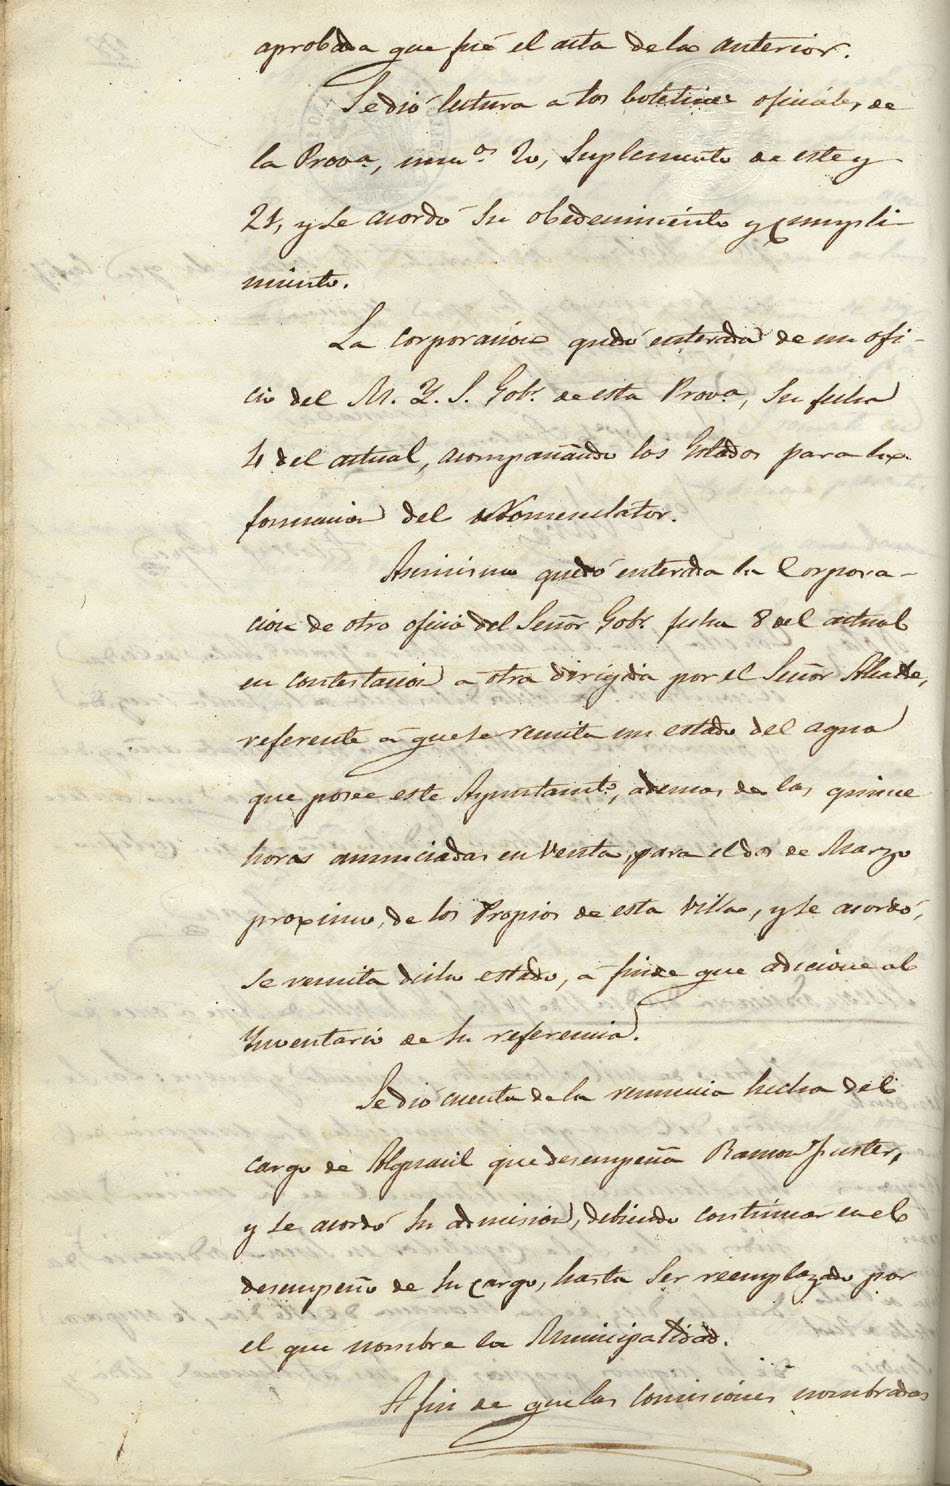 aprobada que fué el acta de la anterior.
Se dió lectura a los boletines oficiales, de
la Prov.ª, num.os 20, Suplemento de este y
21, y se acordó su obedecimiento y cumpli-
miento.
La corporacion quedó enterada de un ofi-
cio del M. Y. S. Gob.r de esta Prov.ª, su fecha
4 del actual, acompañando los Estados para la
formacion del Nomenclator.
Asimismo quedó enterada la Corpora-
cion de otro oficio del Señor Gob.r fecha 8 del actual
en contestacion a otra dirigida por el Señor Alcalde,
referente a que se remita un estado del agua
que posee este Ayuntam.to, ademas de las quince
horas anunciadas en Venta, para el dos de Marzo
proximo, de los Propios de esta Villa, y se acordó,
se remita dicho estado, a fin de que adicione al
Ynventario de su referencia.
Se dió cuenta de la renuncia hecha del
cargo de Alguacil que desempeña Ramon Fuster,
y se acordó su admision, debiendo continuar en el
desempeño de su cargo, hasta ser reemplazado por
el que nombre la Municipalidad.
A fin de que las comisiones nombradas